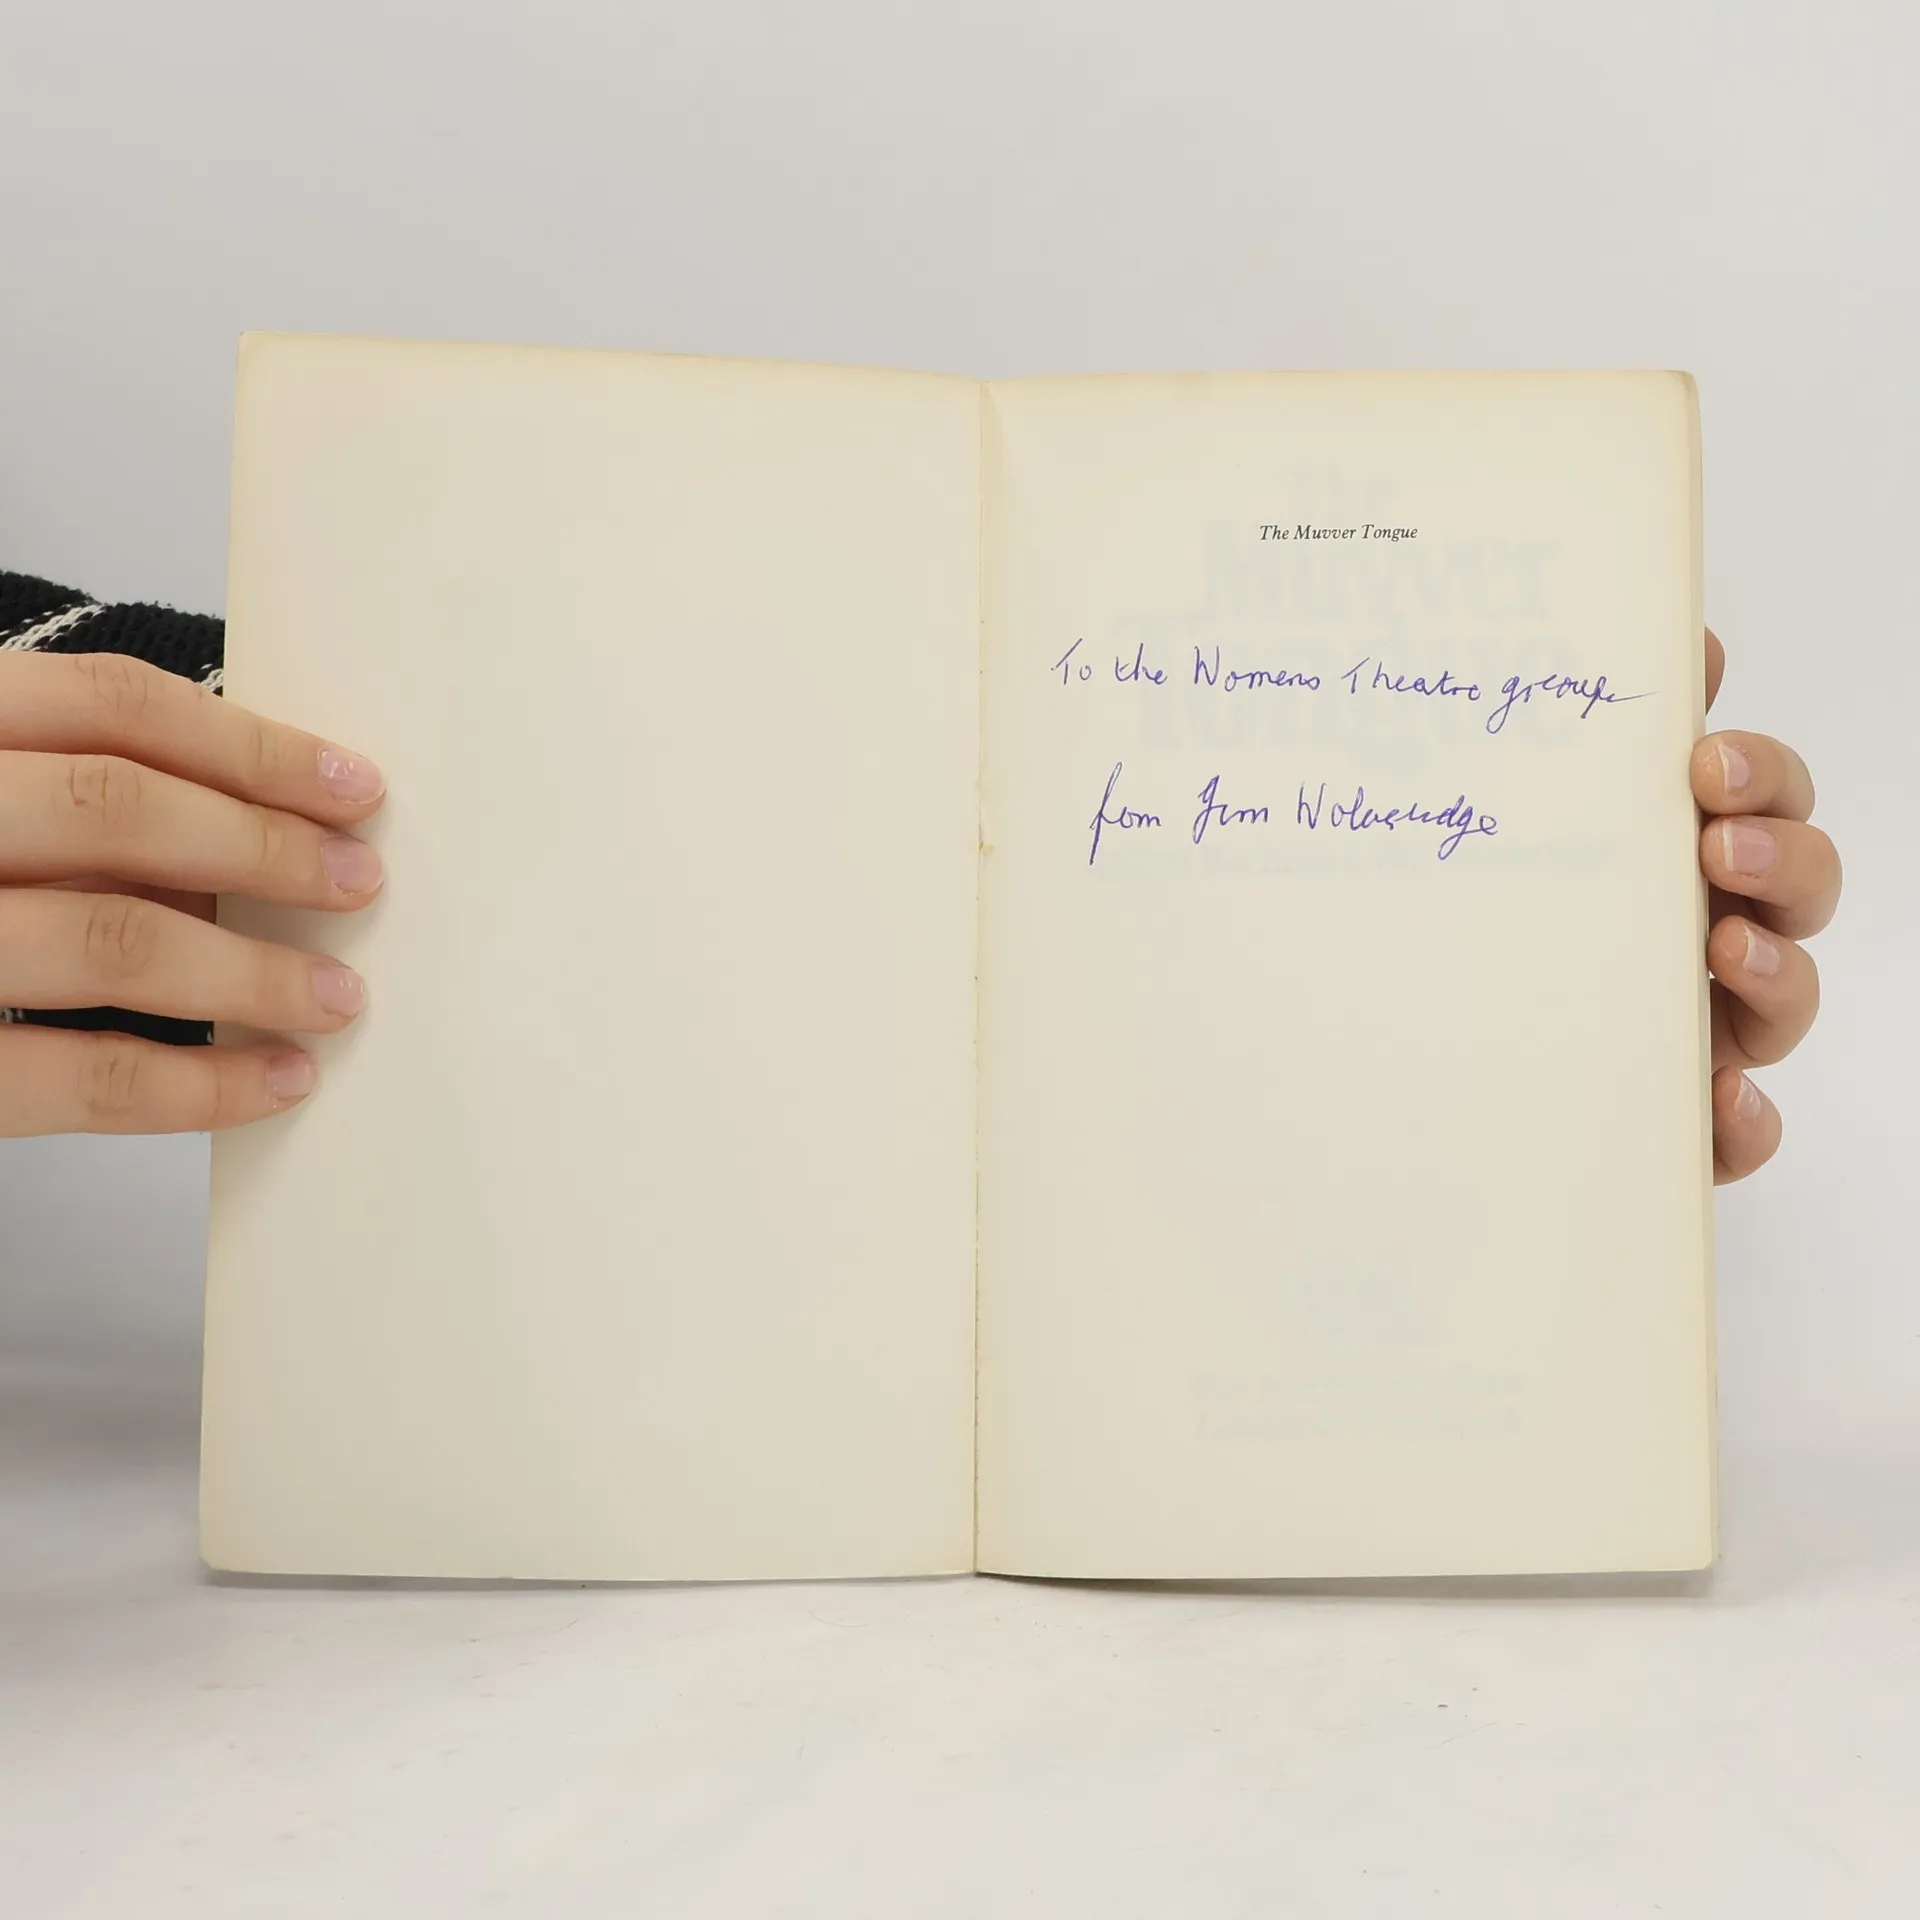 The Muvver Tongue
To the Womens Theatre group
from Jim Wolveridge